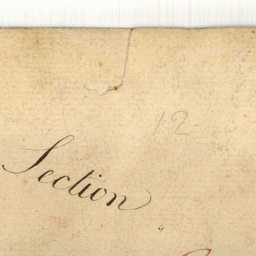 12
Section